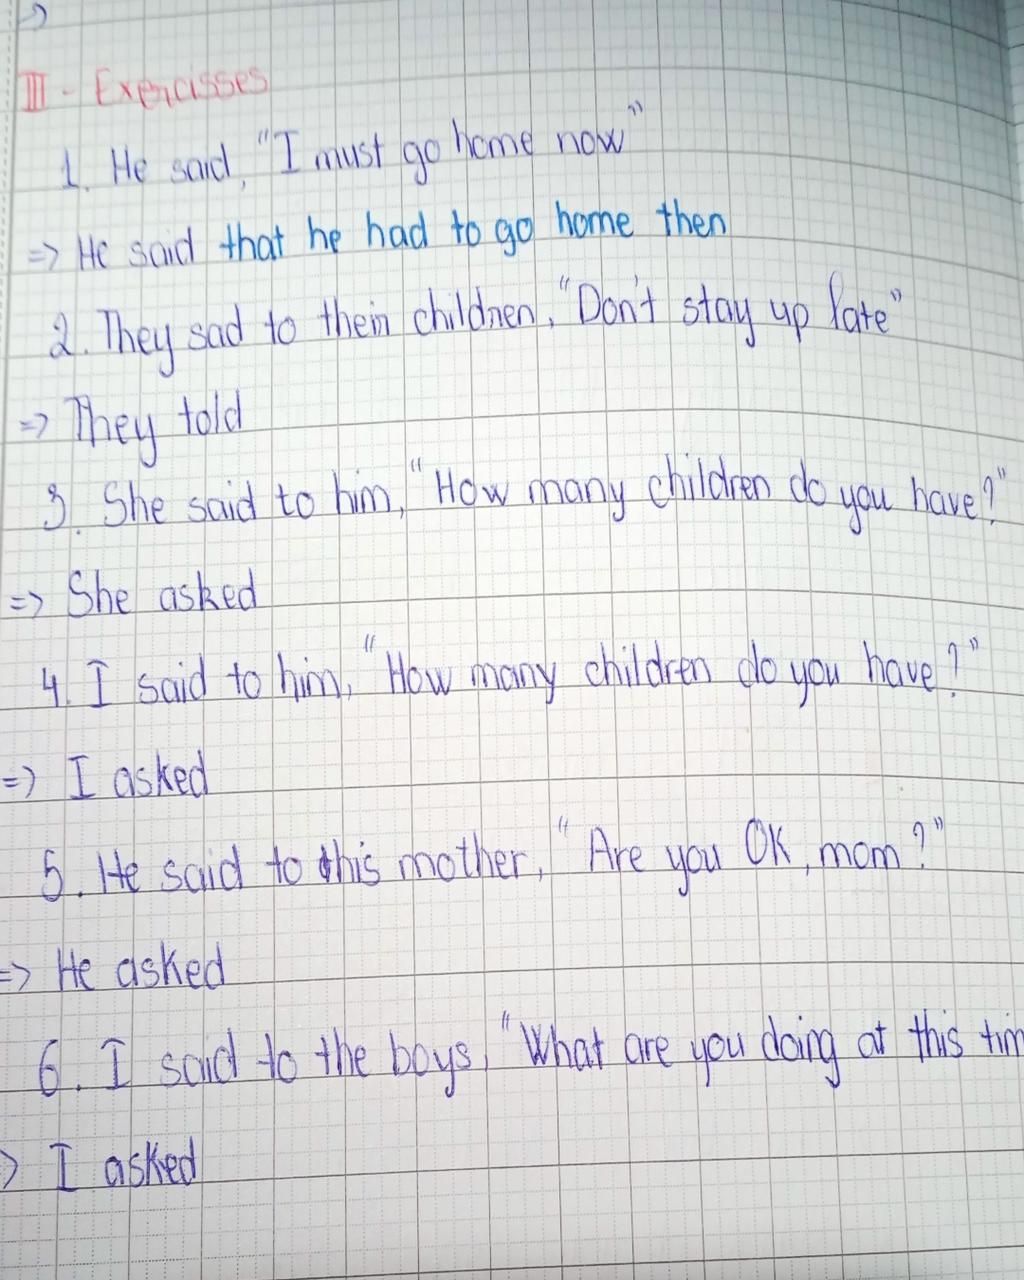 III - Exercisses
1. He said, "I must go home now"
=> He said that he had to go home then
2. They sad to their children, "Don't stay up late"
=> They told
3. She said to him, "How many children do you have?"
=> She asked
4. I said to him, "How many children do you have?"
=> I asked
5. He said to this mother, "Are you OK, mom?"
=> He asked
6. I said to the boys, "What are you doing at this tim
> I asked